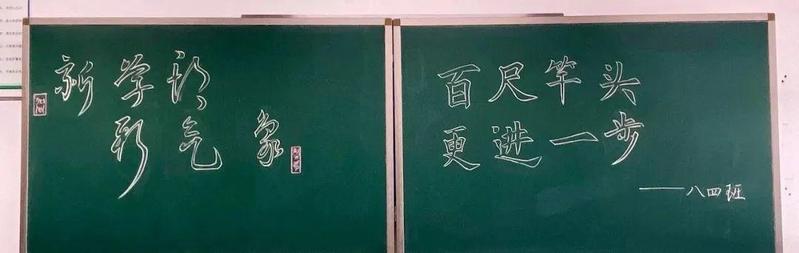 新学期
新气象
百尺竿头
更进一步
——八四班